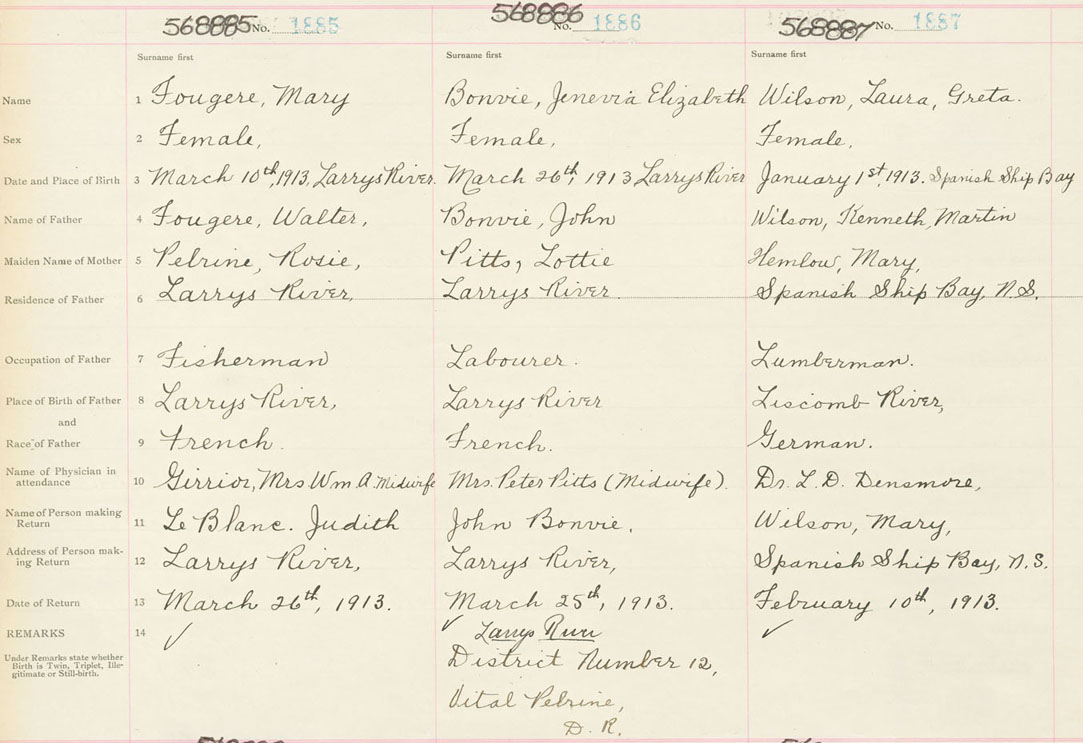 568885 No. 1885 568886 No. 1886 568887 No. 1887
Surname first Surname first Surname first
Name 1 Fougere, Mary Bonvie, Jenevia Elizabeth Wilson, Laura, Greta.
Sex 2 Female, Female, Female,
Date and Place of Birth 3 March 10th, 1913, Larrys River. March 26th, 1913 Larrys River January 1st, 1913. Spanish Ship Bay
Name of Father 4 Fougere, Walter, Bonvie, John Wilson, Kenneth, Martin
Maiden Name of Mother 5 Pelrine, Rosie, Pitts, Lottie Hemlow, Mary,
Residence of Father 6 Larrys River, Larrys River. Spanish Ship Bay, N.S.
Occupation of Father 7 Fisherman Labourer. Lumberman.
Place of Birth of Father 8 Larrys River, Larrys River Liscomb River,
and
Race of Father 9 French. French. German.
Name of Physician in
attendance 10 Girrior, Mrs Wm A. Midwife Mrs. Peter Pitts (Midwife). Dr. L. D. Densmore,
Name of Person making
Return 11 Le Blanc. Judith John Bonvie, Wilson, Mary,
Address of Person mak-
ing Return 12 Larrys River, Larrys River, Spanish Ship Bay, N.S.
Date of Return 13 March 26th, 1913. March 25th, 1913. February 10th, 1913.
REMARKS 14 ✓ ✓ Larrys River ✓
Under Remarks state whether
Birth is Twin, Triplet, Ille-
gitimate or Still-birth.
District Number 12,
Vital Pelrine,
D. R.